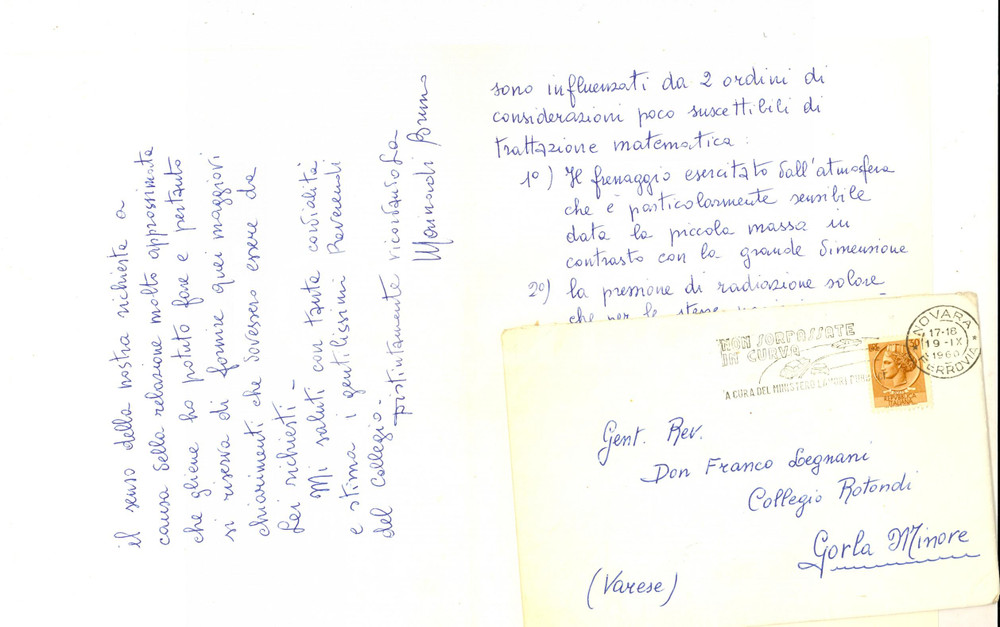 sono influenzati da 2 ordini di
considerazioni poco suscettibili di
trattazione matematica :
1°) Il frenaggio esercitato dall'atmosfera
che è particolarmente sensibile
data la piccola massa in
contrasto con la grande dimensione
2°) la pressione di radiazione solare
che per le stesse
il senso della nostra richiesta a
causa della relazione molto approssimata
che gliene ho potuto fare e pertanto
si riserva di fornire quei maggiori
chiarimenti che dovessero essere da
Lei richiesti -
Mi saluti con tanta cordialità
e stima i gentilissimi Reverendi
del Collegio
Distintamente ricordandola
Bruno
NON SORPASSATE
IN CURVA
A CURA DEL MINISTERO LAVORI PUBBLICI
NOVARA
17-18
19-IX
1960
FERROVIA
Gent. Rev.
Don Franco Legnani
Collegio Rotondi
Gorla Minore
(Varese)